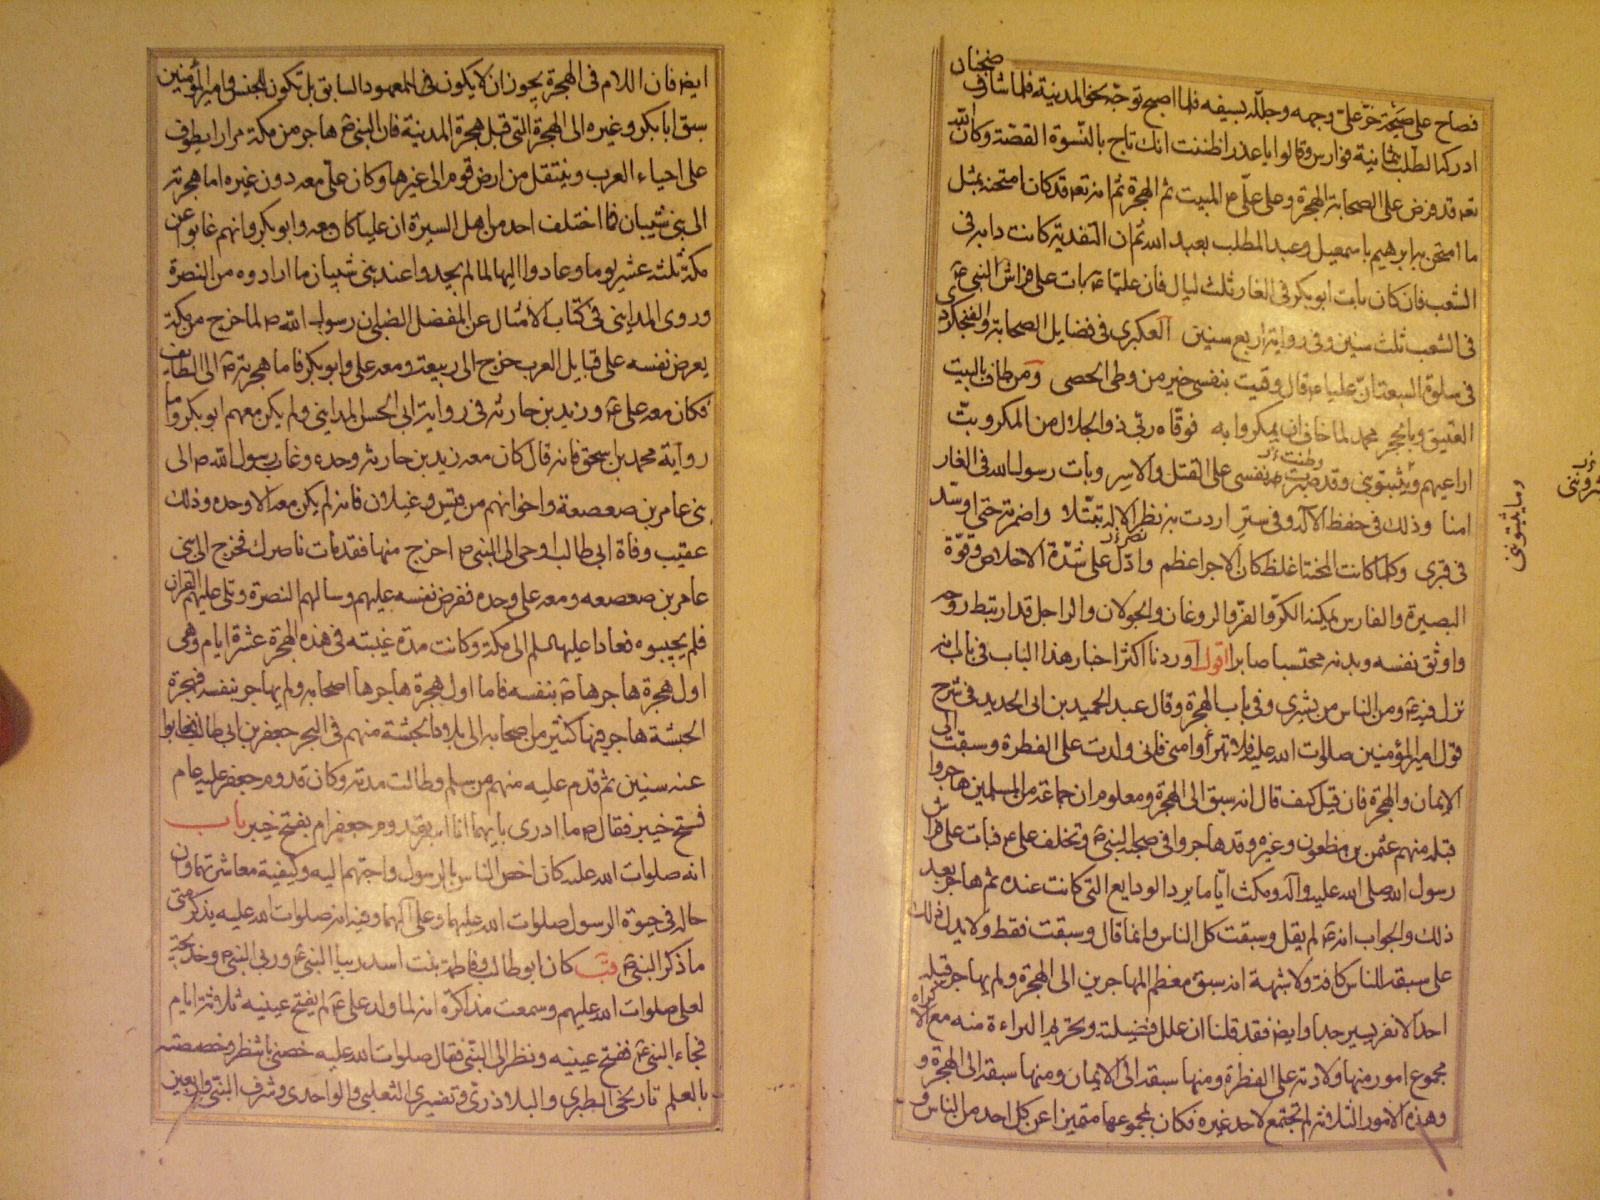 ضجنان
فصاح علی صیحة خر علی وجهه وجلله بسیفه فلما اصبح توجه نحو المدینة فلما شارف
ادرکه الطلب ثمانیة فوارس وقالوا یا غدر اظننت انک ناج بالنسوة القصة وکان الله
تعه قد فرض علی الصحابة الهجرة وعلی علی م المبیت ثم الهجرة ثم انه تعه قد کان امتحنه بمثل
ما امتحن به ابرهیم باسمعیل وعبد المطلب بعبد الله ثم ان التفدیة کانت دابه فی
الشعب فان کان بات ابو بکر فی الغار ثلث لیال فان علیا ع بات علی فراش النبی ع
فی الشعب ثلث سنین وفی روایة اربع سنین العکبری فی فضایل الصحابة والفنجکردی
فی سلوة الشیعة ان علیا ع قال وقیت بنفسی خیر من وطی الحصی ومن طاف بالبیت
العتیق وبالحجر محمد لما خاف ان یمکروا به فوقاه ربی ذو الجلال من المکر وبت
اراعیهم ویثبتونی وقد صبرت نفسی علی القتل والاسر وبات رسول الله فی الغار
امنا وذلک فی حفظ الاله وفی ستر اردت به نظر الاله تبتلا واضمرته حتی اوسد
فی قبری وکلما کانت المحنة اغلظ کان الاجر اعظم وادل علی شدة الاخلاص وقوة
البصیرة والفارس یمکنه الکر والفر والروغان والجولان والراجل قد ارتبط روحه
واوثق نفسه وبدنه محتسبا صابرا اقول اوردنا اکثر اخبار هذا الباب فی باب انه
نزل فیه ع ومن الناس من یشری وفی باب الهجرة وقال عبد الحمید بن ابی الحدید فی شرح
قول امیر المؤمنین صلوات الله علیه فلا تتبرأوا منی فانی ولدت علی الفطرة وسبقت الی
الایمان والهجرة فان قیل کیف قال انه سبق الی الهجرة ومعلوم ان جماعة من المسلمین هاجروا
قبله منهم عثمن بن مظعون وغیره وقد هاجروا فی صحبة النبی ع وتخلف علی ع فبات علی فراش
رسول الله صلی الله علیه واله ومکث ایاما یرد الودایع التی کانت عنده ثم هاجر بعد
ذلک والجواب انه ع لم یقل وسبقت کل الناس وانما قال وسبقت فقط ولا یدل ذلک
علی سبقه للناس کافة ولا شبهة انه سبق معظم المهاجرین الی الهجرة ولم یهاجر قبله
احد الا نفر یسیر جدا وایض فقد قلنا ان علل فضیلته وتحریم البراءة منه مع الاکراه
مجموع امور منها ولادته علی الفطرة ومنها سبقه الی الایمان ومنها سبقه الی الهجرة و
وهذه الامور الثلاثة لم تجتمع لاحد غیره فکان بمجموعها متمیزا عن کل احد من الناس و
وما یثبتونی
ایض فان اللام فی الهجرة یجوز ان لا یکون فی المعهود السابق بل تکون للجنس وامیر المؤمنین
سبق ابا بکر وغیره الی الهجرة التی قبل هجرة المدینة فان النبی ع هاجر من مکة مرارا یطوف
علی احیاء العرب وینتقل من ارض قوم الی غیرها وکان علی معه دون غیره اما هجرته
الی بنی شیبان فما اختلف احد من اهل السیرة ان علیا کان معه وابو بکر وانهم غابوا عن
مکة ثلثه عشر یوما وعادوا الیها لما لم یجدوا عند بنی شیبان ما ارادوه من النصرة
وروی المداینی فی کتاب الامثال عن المفضل الضبی ان رسول الله ص لما خرج من مکة
یعرض نفسه علی قبایل العرب خرج الی ربیعة ومعه علی وابو بکر فاما هجرته ع الی الطایف
فکان معه علی ع وزید بن حارثه فی روایة ابی الحسن المداینی ولم یکن معهم ابو بکر واما
روایة محمد بن اسحق فانه قال کان معه زید بن حارثه وحده وغاب رسول الله ص الی
بنی عامر بن صعصعة واخوانهم من قیس وغیلان فانه لم یکن معه الا وحده وذلک
عقیب وفاة ابی طالب اوحی الی النبی ص اخرج منها فقد مات ناصرک فخرج الی بنی
عامر بن صعصعه ومعه علی وحده فعرض نفسه علیهم وسالهم النصرة وتلی علیهم القران
فلم یجیبوه فعادا علیهما السلم الی مکة وکانت مدة غیبته فی هذه الهجرة عشرة ایام وهی
اول هجرة هاجرها ص بنفسه فاما اول هجرة هاجرها اصحابه ولم یهاجر بنفسه فهجرة
الحبشة هاجر فیها کثیر من اصحابه الی بلاد الحبشة منهم فی البحر جعفر بن ابی طالب فغابوا
عنه سنین ثم قدم علیه منهم من سلم وطالت مدته وکان قدوم جعفر علیه عام
فتح خیبر فقال ص ما ادری بایهما انا اسر بقدوم جعفر ام بفتح خیبر باب
انه صلوات الله علیه کان اخص الناس بالرسول واحبهم الیه وکیفیة معاشرتهما وان
حاله فی حیوة الرسول صلوات الله علیهما وعلی آلهما وفیه انه صلوات الله علیه یذکر متی
ما ذکر النبی ص قب کان ابو طالب وفاطمة بنت اسد ربیا النبی ع وربی النبی ع وخدیجة
لعلی صلوات الله علیهم وسمعت مذاکرة انه لما ولد علی ع لم یفتح عینیه ثلاثة ایام
فجاء النبی ع ففتح عینیه ونظر الی النبی فقال صلوات الله علیه خصنی بالنظر وخصصته
بالعلم تاریخی الطبری والبلاذری وتفسیری الثعلبی والواحدی وشرف النبی واربعین